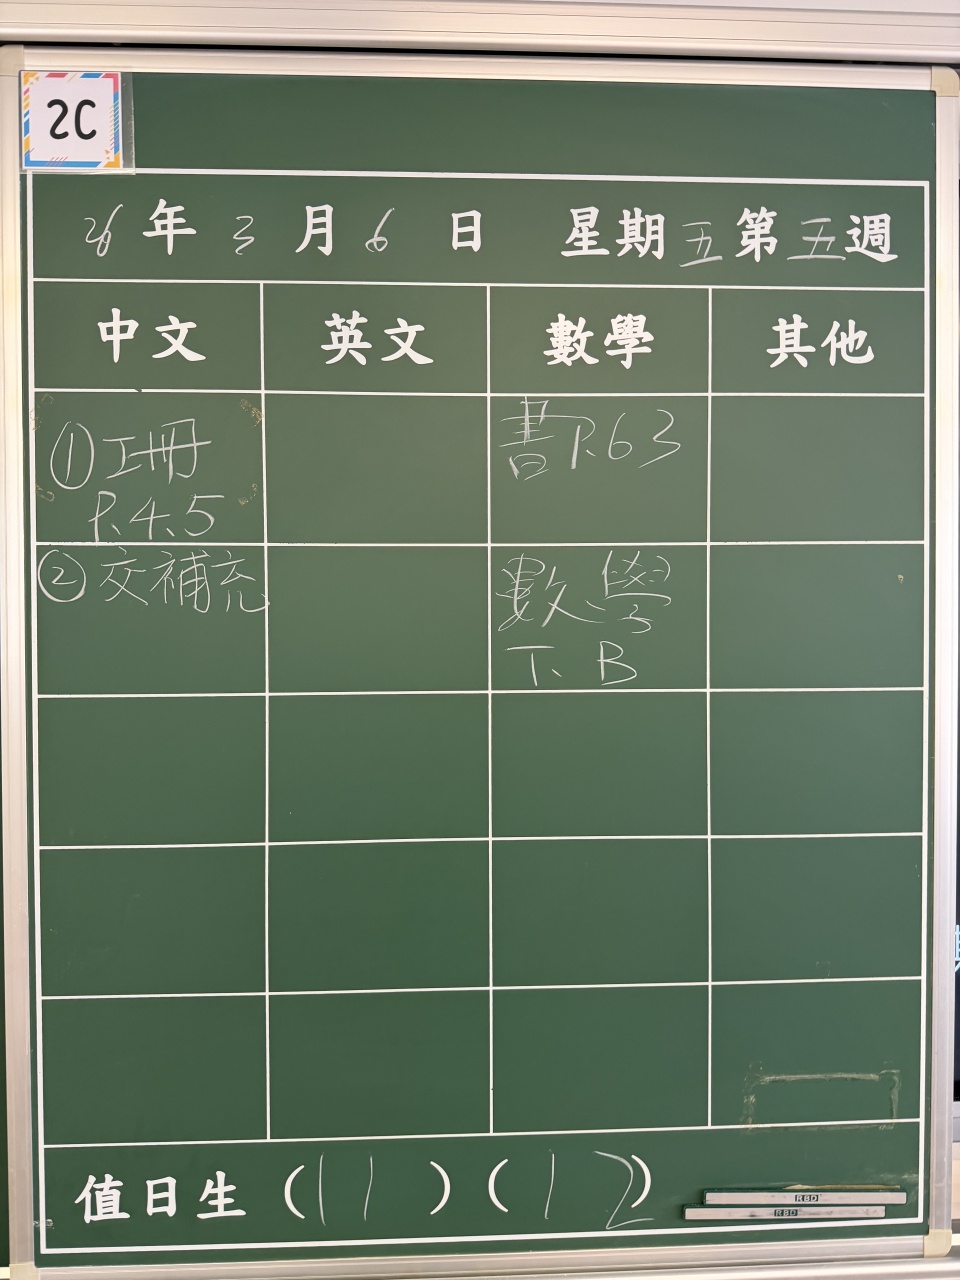 2C
26年3月6日 星期五第五週
中文 英文 數學 其他
①工冊
P.4、5
書P.63
②交補充
數學
T、B
值日生(11)(12)
RBD
RBD